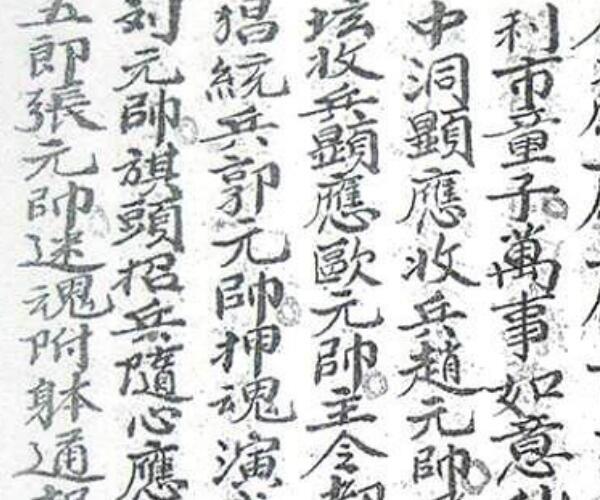 利市童子萬事如意
中洞顯應收兵趙元帥
坛收兵顯應歐元帥主令
猖統兵郭元帥押魂演
刘元帥旗頭招兵隨心應
五郎張元帥迷魂附躰通